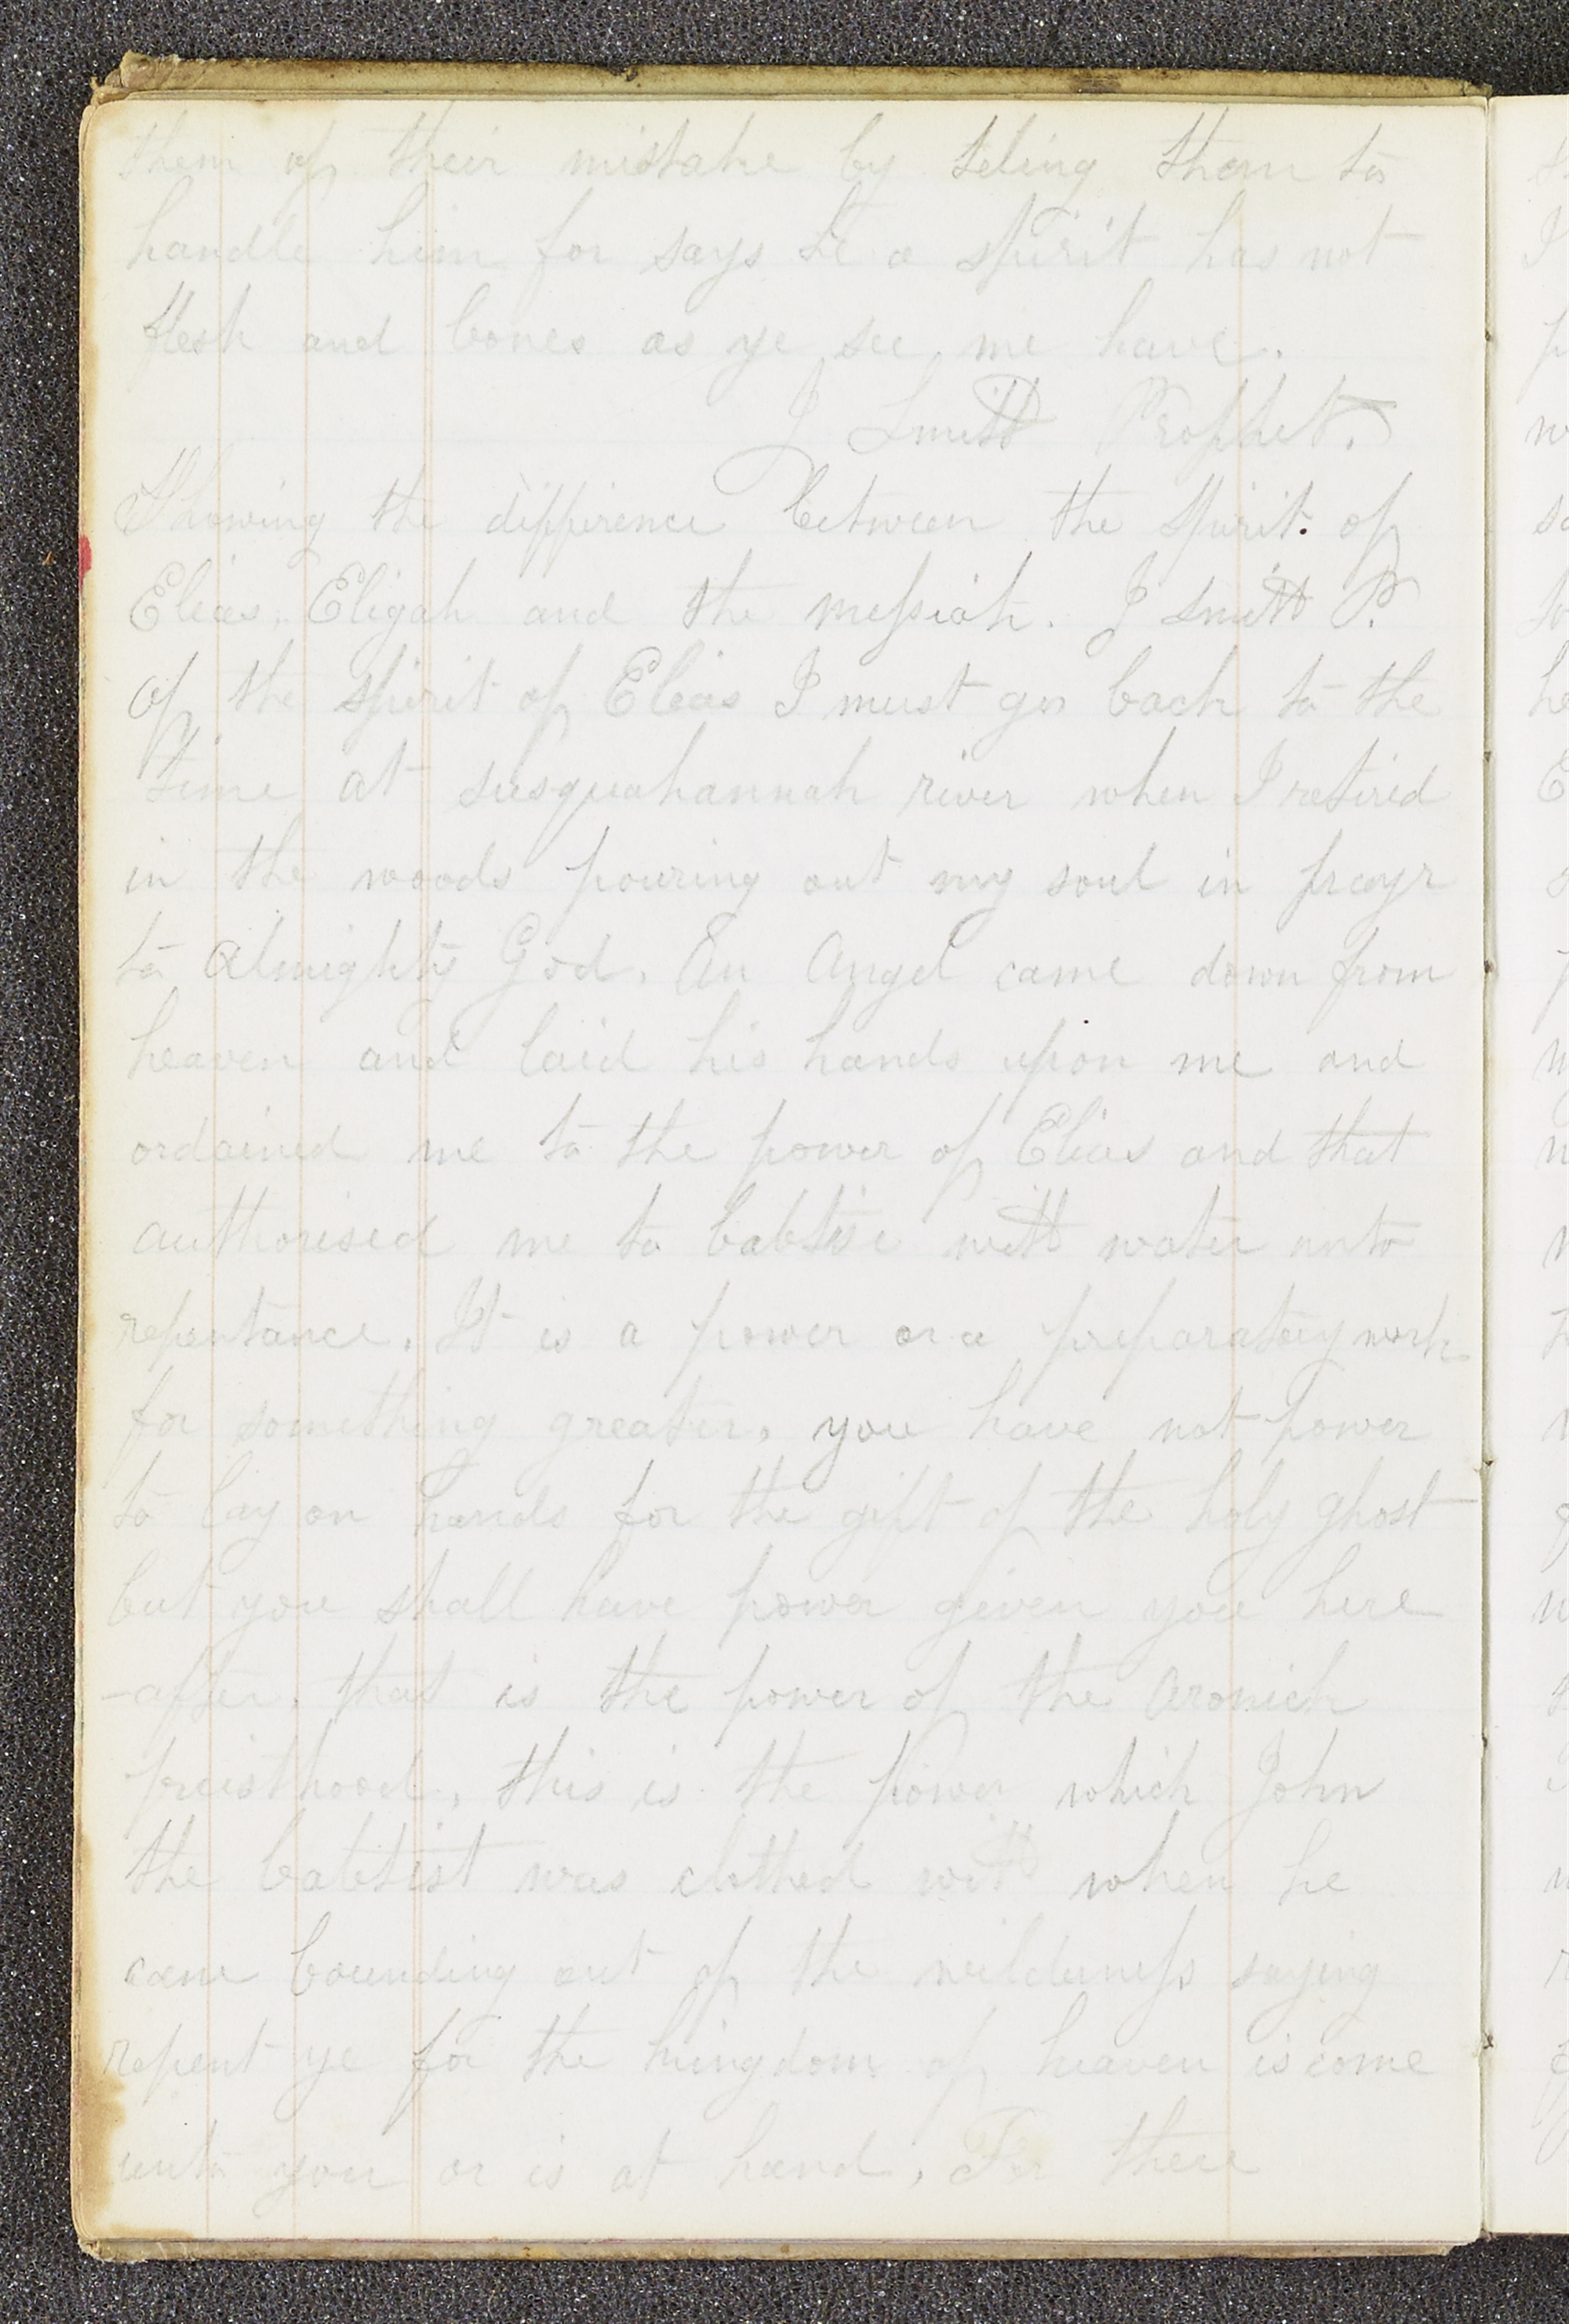 them of their mistake by teling them to
handle him for says he a spirit has not
flesh and bones as ye see me have.
J Smith Prophet.
Showing the difference between the spirit of
Elias, Eligah and the messiah. J Smith P.
Of the spirit of Elias I must go back to the
time at susquahannah river when I retired
in the woods pouring out my soul in prayr
to Almighty God. An Angel came down from
heaven and laid his hands upon me and
ordained me to the power of Elias and that
authorised me to babtise with water unto
repentance. It is a power or a preparatory work
for something greater. you have not power
to lay on hands for the gift of the holy ghost
but you shall have power given you here
-after. that is the power of the aronick
preisthood, this is the power which John
the babtist was clothed with when he
came bounding out of the wilderness saying
repent ye for the kingdom of heaven is come
unto you or is at hand. For there